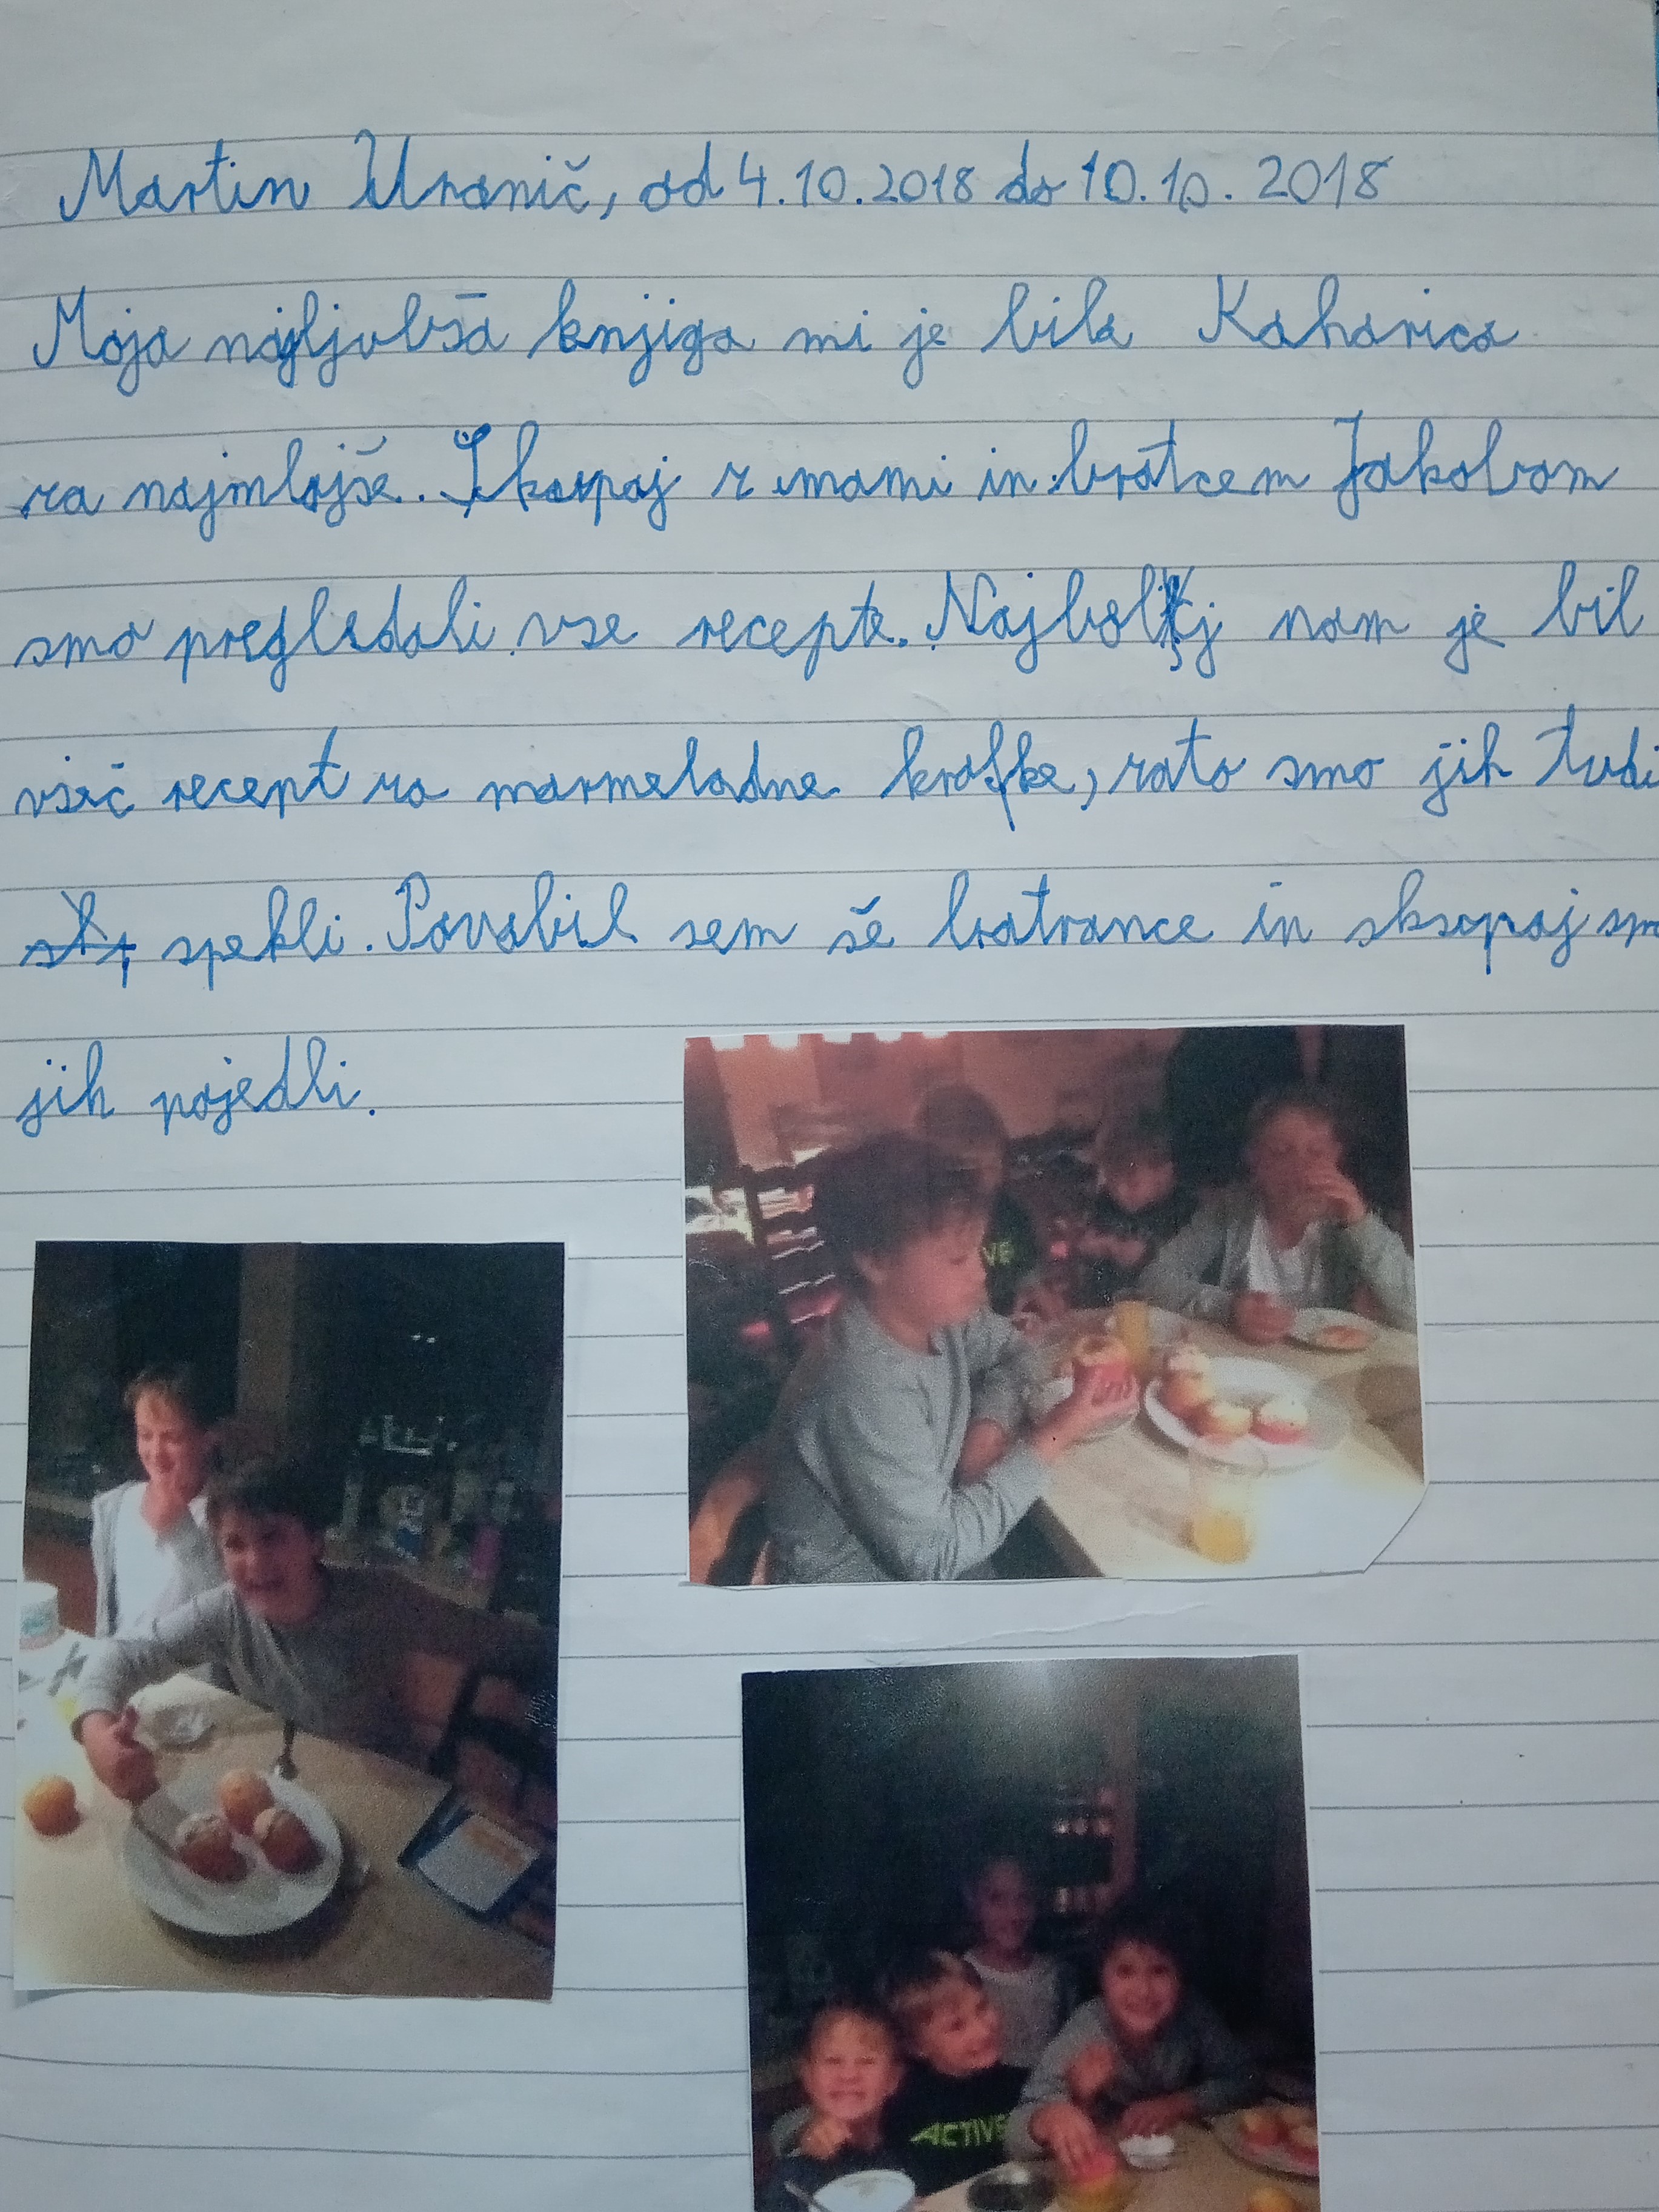 Martin Uranič, od 4.10.2018 do 10.10.2018
Moja najljubša knjiga mi je bila Kuharica
za najmlajše. Skupaj z mami in bratcem Jakobom
smo pregledali vse recepte. Najbolj nam je bil
všeč recept za marmeladne krofke, zato smo jih tudi
spekli. Povabil sem še bratrance in skupaj smo
jih pojedli.
VE
ACTIVE